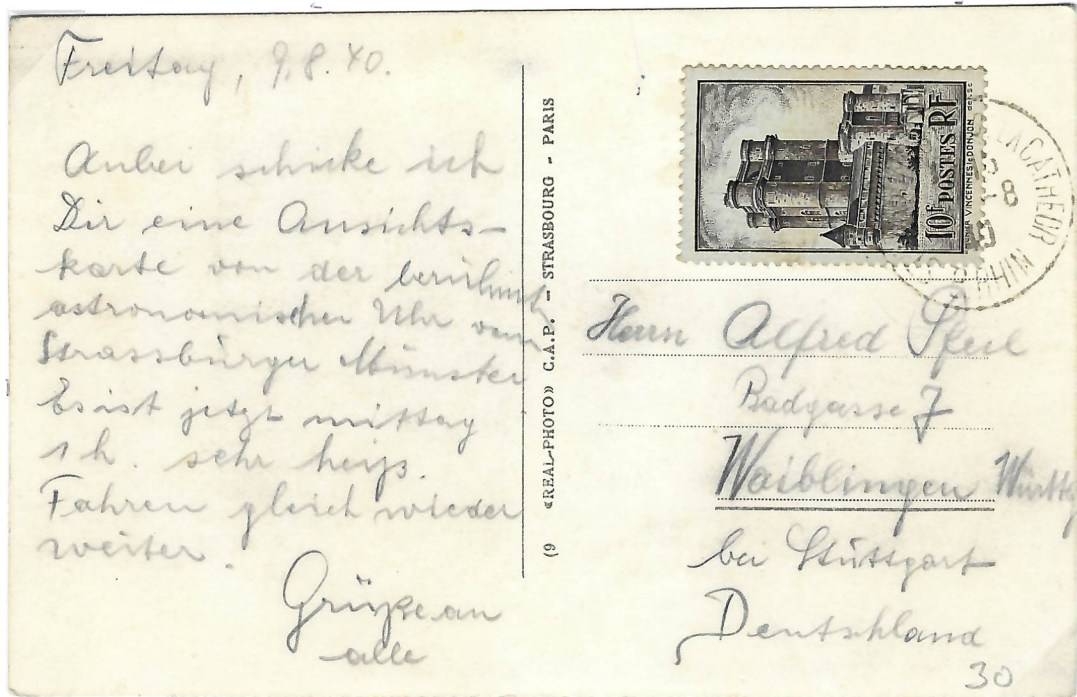 Freitag, 9.8.40.
Anbei schicke ich
Dir eine Ansichts-
karte von der berühmt
astronomischen Uhr vom
Strassburger Münster
Es ist jetzt mittag
1 h. sehr heiß.
Fahren gleich wieder
weiter.
Grüße an
alle
(9 «REAL-PHOTO» C.A.P. - STRASBOURG - PARIS
10F POSTES RF
VINCENNES le DONJON
LA CATHEDR
-8
RHIN
Herrn Alfred Pfeil
Badgasse 7
Waiblingen Württg
bei Stuttgart
Deutschland
30